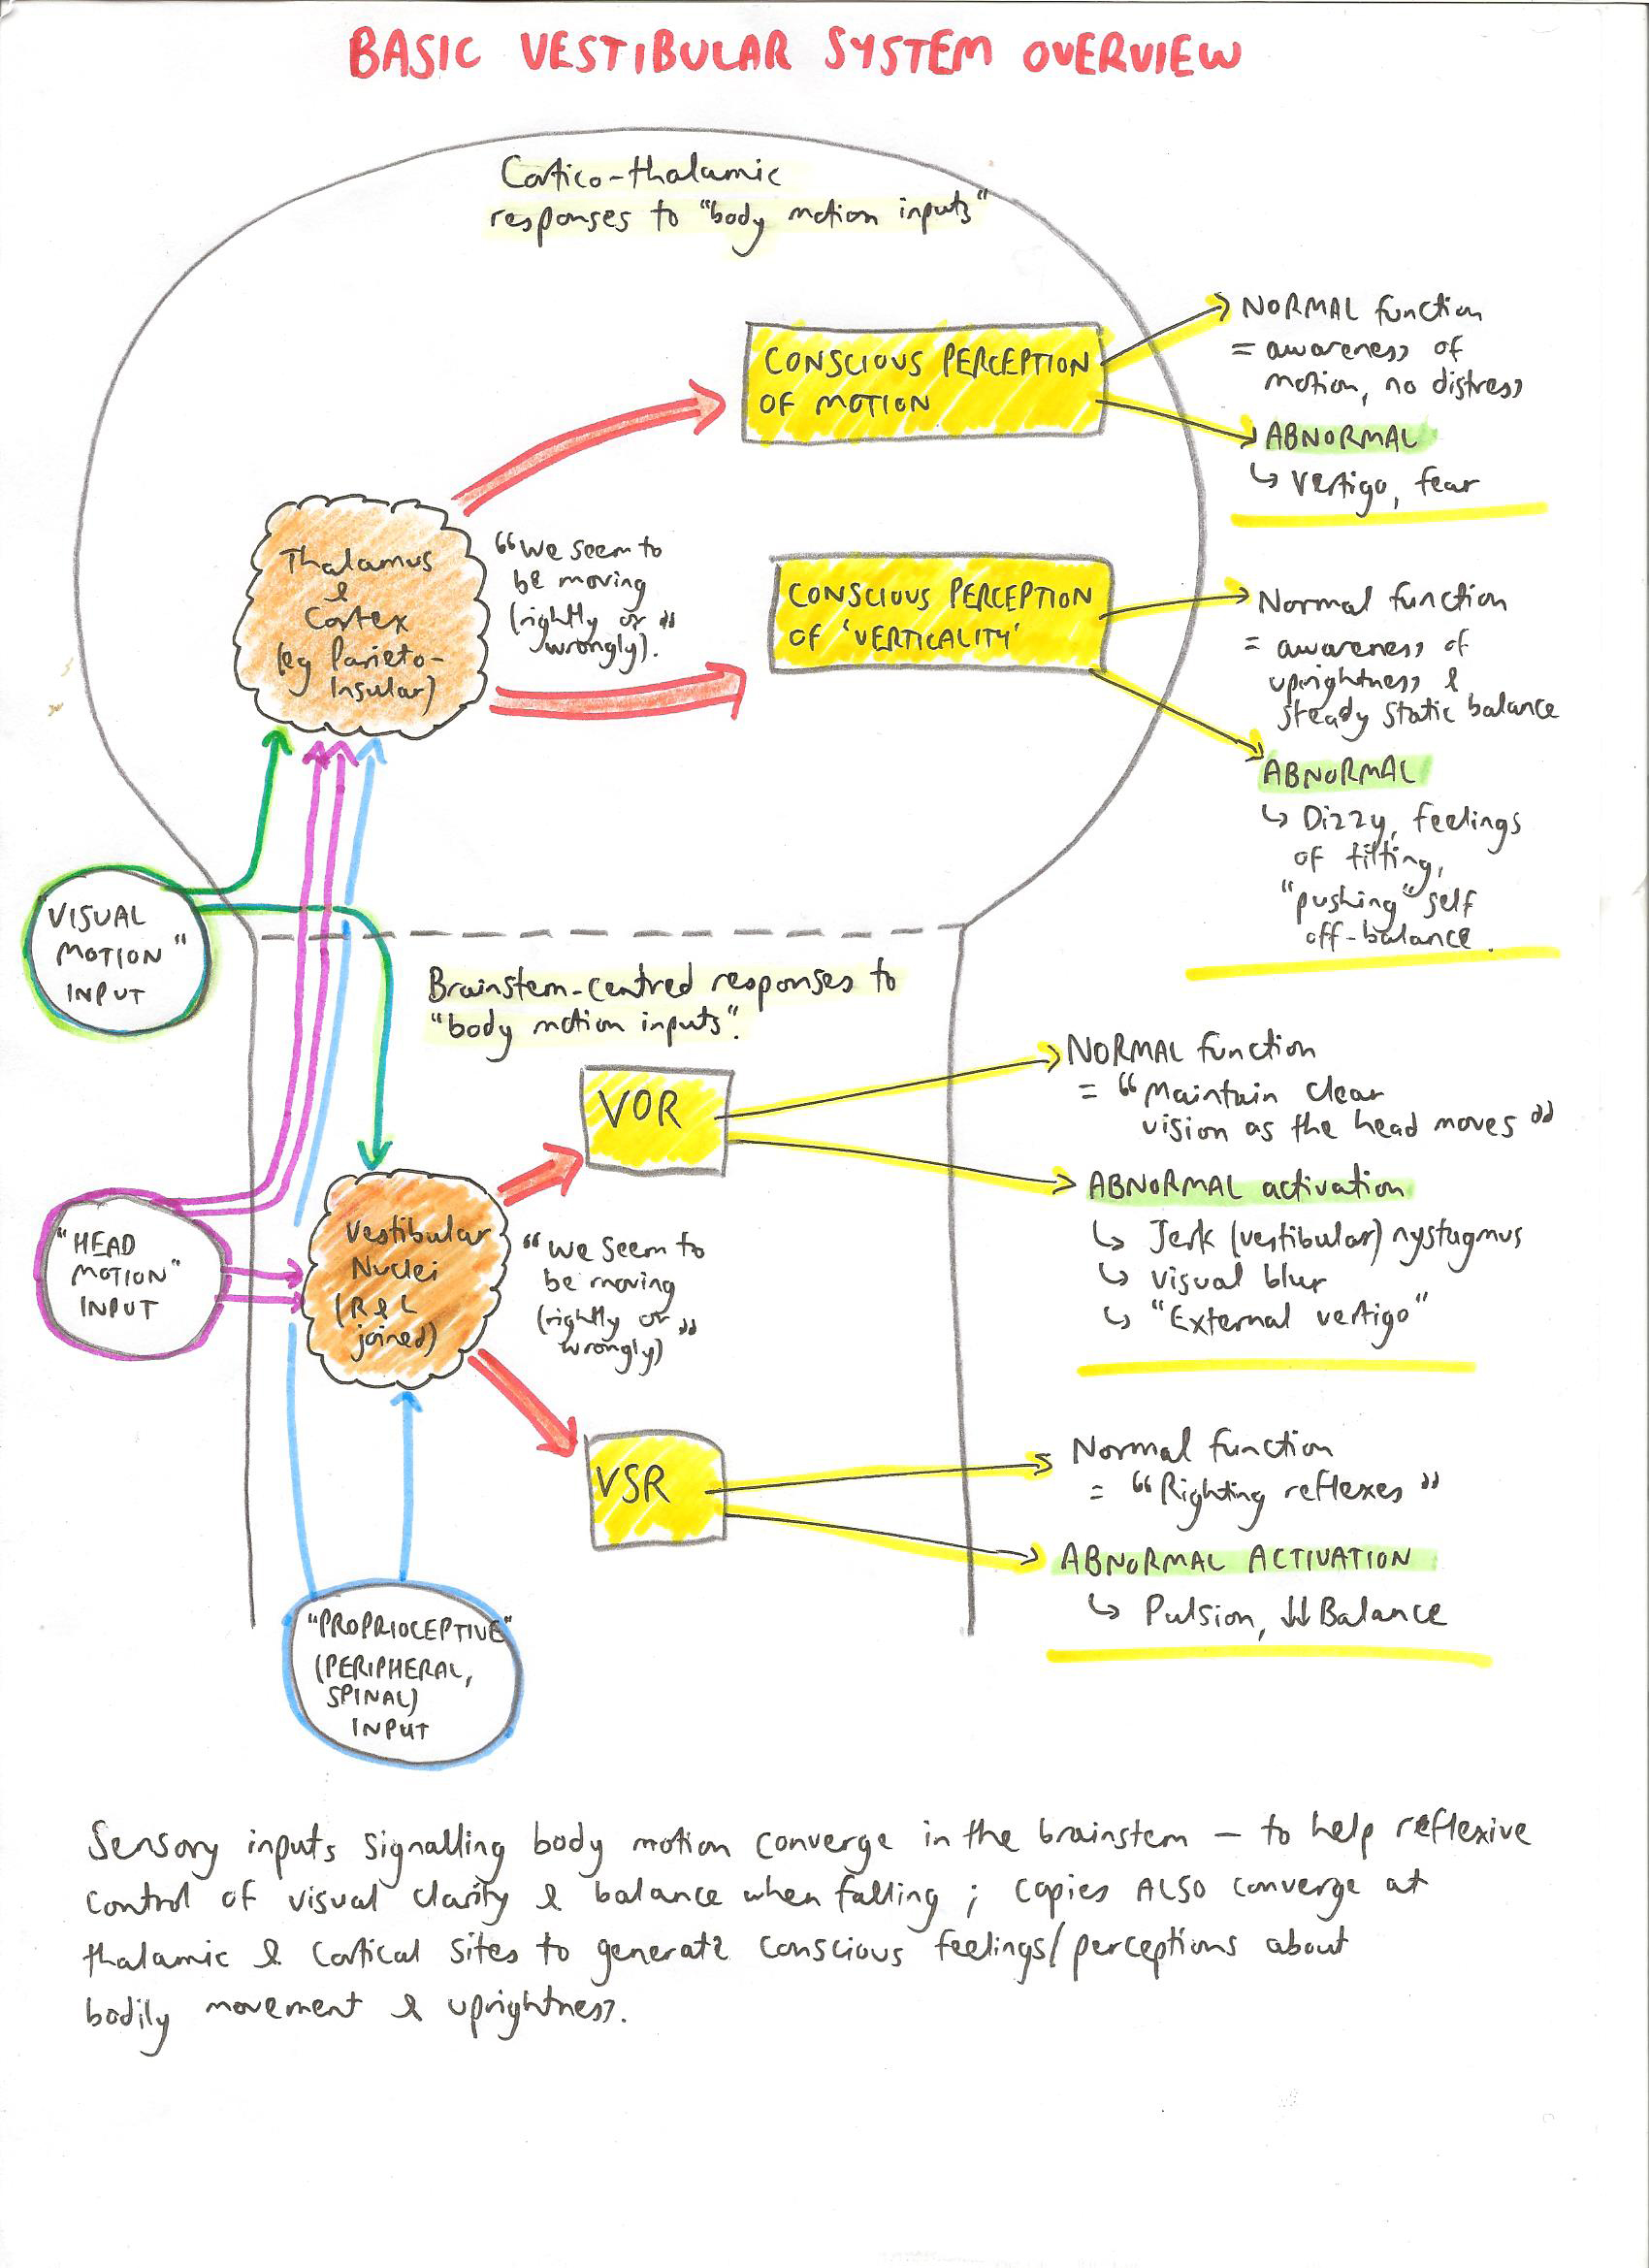 BASIC VESTIBULAR SYSTEM OVERVIEW
Cortico-thalamic
responses to "body motion inputs"
CONSCIOUS PERCEPTION
OF MOTION
NORMAL function
= awareness of
motion, no distress
ABNORMAL
↳ Vertigo, fear
Thalamus
&
Cortex
(eg Parieto-
Insular)
"We seem to
be moving
(rightly or
wrongly)."
CONSCIOUS PERCEPTION
OF 'VERTICALITY'
Normal function
= awareness of
uprightness &
steady static balance
ABNORMAL
↳ Dizzy, feelings
of tilting,
"pushing" self
off-balance.
"VISUAL
MOTION"
INPUT
Brainstem-centred responses to
"body motion inputs".
VOR
NORMAL function
= "Maintain clear
vision as the head moves"
ABNORMAL activation
↳ Jerk (vestibular) nystagmus
↳ visual blur
↳ "External vertigo"
"HEAD
MOTION"
INPUT
Vestibular
Nuclei
(R & L
joined)
"We seem to
be moving
(rightly or
wrongly)"
VSR
Normal function
= "Righting reflexes"
ABNORMAL ACTIVATION
↳ Pulsion, ↓↓ Balance
"PROPRIOCEPTIVE"
(PERIPHERAL,
SPINAL)
INPUT
Sensory inputs signalling body motion converge in the brainstem – to help reflexive
control of visual clarity & balance when falling; copies ALSO converge at
thalamic & cortical sites to generate conscious feelings/perceptions about
bodily movement & uprightness.